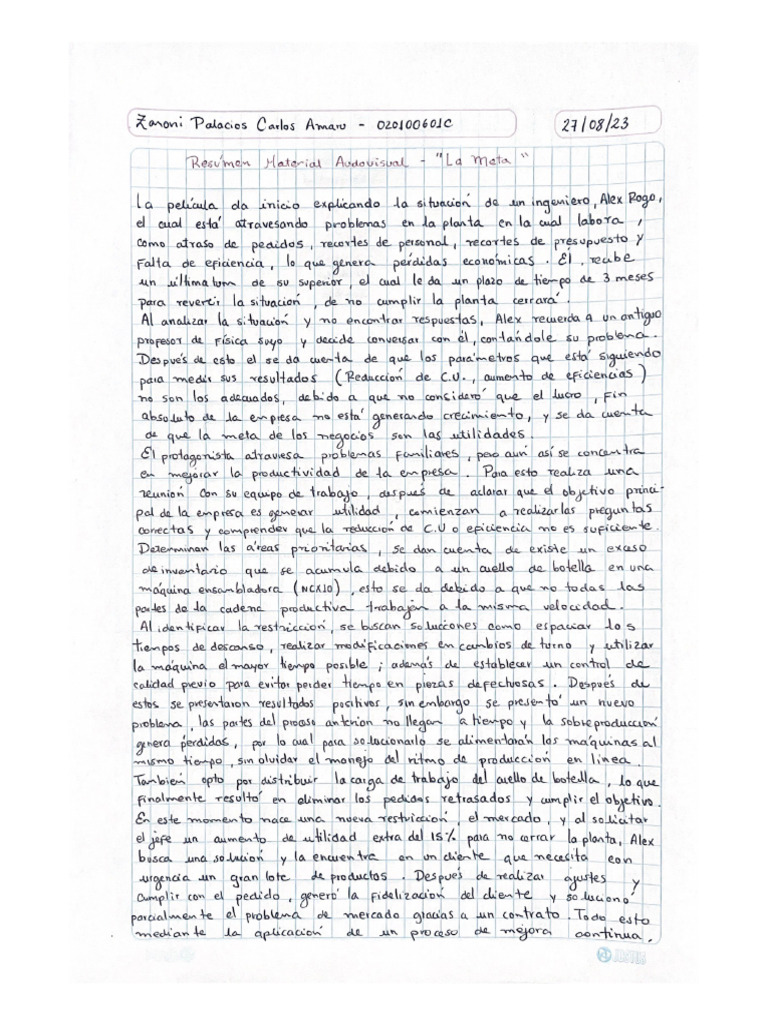 Zanoni Palacios Carlos Amaru - 020100601C
27/08/23
Resúmen Material Audovisual - "La Meta"
La película da inicio explicando la situación de un ingeniero, Alex Rogo,
el cual está atravesando problemas en la planta en la cual labora,
como atraso de pedidos, recortes de personal, recortes de presupuesto y
falta de eficiencia, lo que genera pérdidas económicas. Él, recibe
un últimatum de su superior, el cual le da un plazo de tiempo de 3 meses
para revertir la situación, de no cumplir la planta cerrará.
Al analizar la situación y no encontrar respuestas, Alex recuerda a un antiguo
profesor de Física suyo y decide conversar con él, contándole su problema.
Después de esto el se da cuenta de que los parámetros que está siguiendo
para medir sus resultados (Reducción de C.U., aumento de eficiencias)
no son los adecuados, debido a que no consideró que el lucro, fin
absoluto de la empresa no está generando crecimiento, y se da cuenta
de que la meta de los negocios son las utilidades.
El protagonista atraviesa problemas familiares, pero aún así se concentra
en mejorar la productividad de la empresa. Para esto realiza una
reunión con su equipo de trabajo, después de aclarar que el objetivo princi-
pal de la empresa es generar utilidad, comienzan a realizarlas preguntas
correctas y comprender que la reducción de C.U o eficiencia no es suficiente.
Determinan las áreas prioritarias, se dan cuenta de existe un exceso
de inventario que se acumula debido a un cuello de botella en una
máquina ensambladora (NCX10), esto se da debido a que no todas las
partes de la cadena productiva trabajan a la misma velocidad.
Al identificar la restricción, se buscan soluciones como espaciar los
tiempos de descanso, realizar modificaciones en cambios de turno y utilizar
la máquina el mayor tiempo posible; además de establecer un control de
calidad previo para evitar perder tiempo en piezas defectuosas. Después de
estos se presentaron resultados positivos, sin embargo se presentó un nuevo
problema, las partes del proceso anterior no llegan a tiempo y la sobreproducción
genera pérdidas, por lo cual para solucionarlo se alimentarán las máquinas al
mismo tiempo, sin olvidar el manejo del ritmo de producción en linea.
También opto por distribuir la carga de trabajo del cuello de botella, lo que
finalmente resultó en eliminar los pedidos retrasados y cumplir el objetivo.
En este momento nace una nueva restricción, el mercado, y al solicitar
el jefe un aumento de utilidad extra del 15% para no cerrar la planta, Alex
busca una solución y la encuentra en un cliente que necesita con
urgencia un gran lote de productos. Después de realizar ajustes y
cumplir con el pedido, generó la fidelización del cliente y solucionó
parcialmente el problema de mercado gracias a un contrato. Todo esto
mediante la aplicación de un proceso de mejora continua.